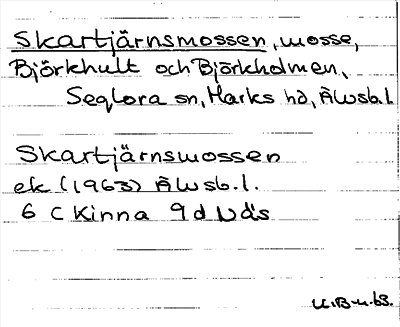 Skartjärnsmossen, mosse,
Björkhult och Björkholmen,
Seglora sn, Marks hd, Älvsb.l
Skartjärnsmossen
ek (1963) Älvsb.l.
6 C Kinna 9d Nd's